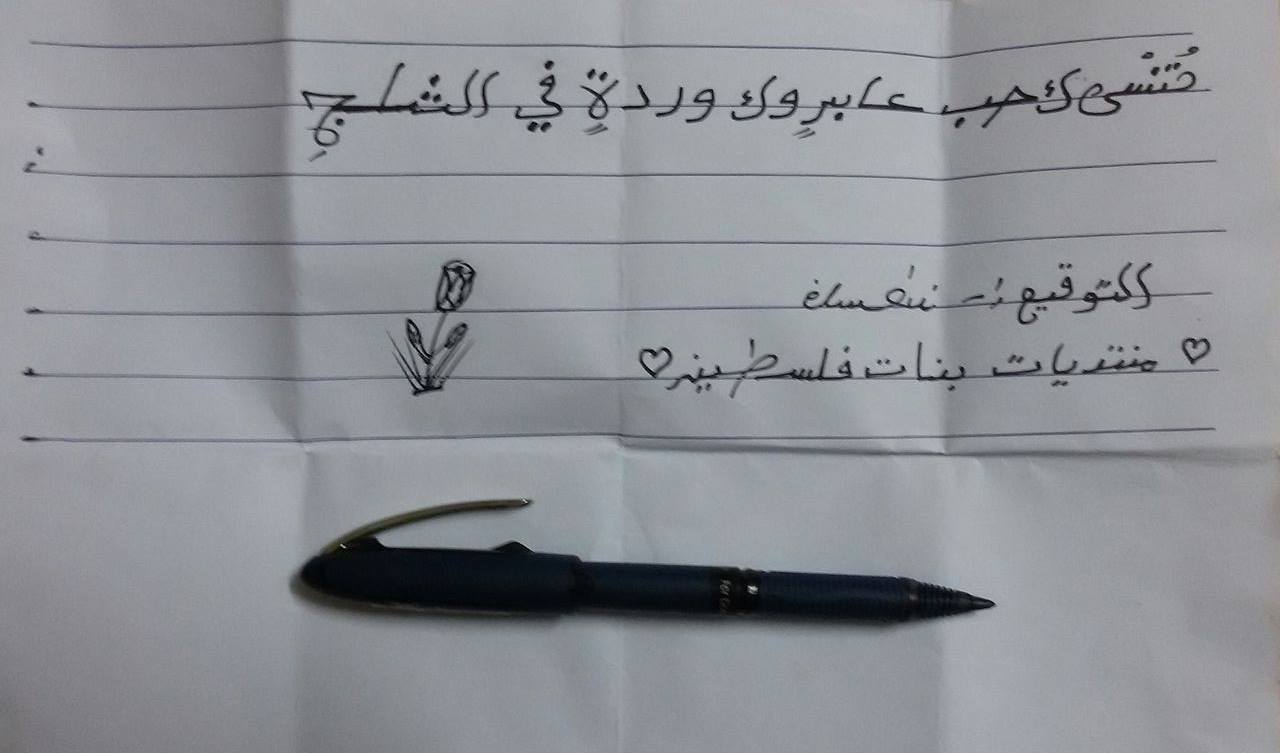 تُنْسى كحب عابرٍ وك وردةٍ في الثلجِ
التوقيع :-
♡ منتديات بنات فلسطين ♡